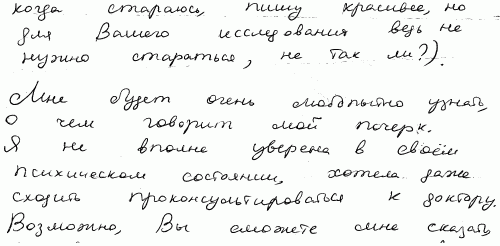 когда стараюсь, пишу красивее, но
для Вашего исследования ведь не
нужно стараться, не так ли?).
Мне будет очень любопытно узнать,
о чем говорит мой почерк.
Я не вполне уверена в своём
психическом состоянии, хотела даже
сходить проконсультироваться к доктору.
Возможно, Вы сможете мне сказать,